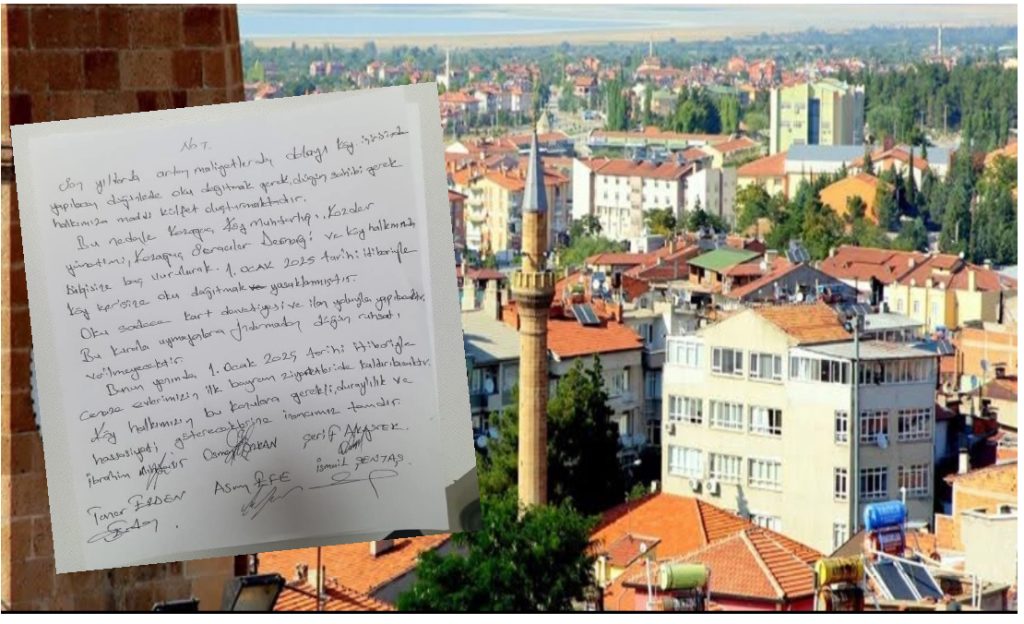 No 7.
Son yıllarda artan maliyetlerden dolayı köy içerisinde
yapılacak düğünlede oku dağıtmak gerek, düğün sahibi gerek
halkımıza maddi külfet oluşturmaktadır.
Bu nedenle Kozağaç Köy Muhtarlığı, Kozder
yönetimi, Kozağaç Avcılar Derneği ve köy halkımızın
bilgisine baş vurularak. 1. OCAK 2025 tarihi itibariyle
köy içerisine oku dağıtmak yasaklanmıştır.
Oku sadece kart davetiyesi ve ilan yoluyla yapılacaktır.
Bu kurala uymayanlara düğün ruhsatı,
verilmeyecektir.
Bunun yanında 1. Ocak 2025 tarihi itibariyle
cenaze evlerimizin ilk bayram ziyaretleride kaldırılacaktır.
Köy halkımızın bu konulara gerekli, duyarlılık ve
hassasiyati göstereceklerine inancımız tamdır.
İbrahim Osman ÖZKAN Şerif
İsmail ŞENTAŞ
Taner ERDEN Asım EFE